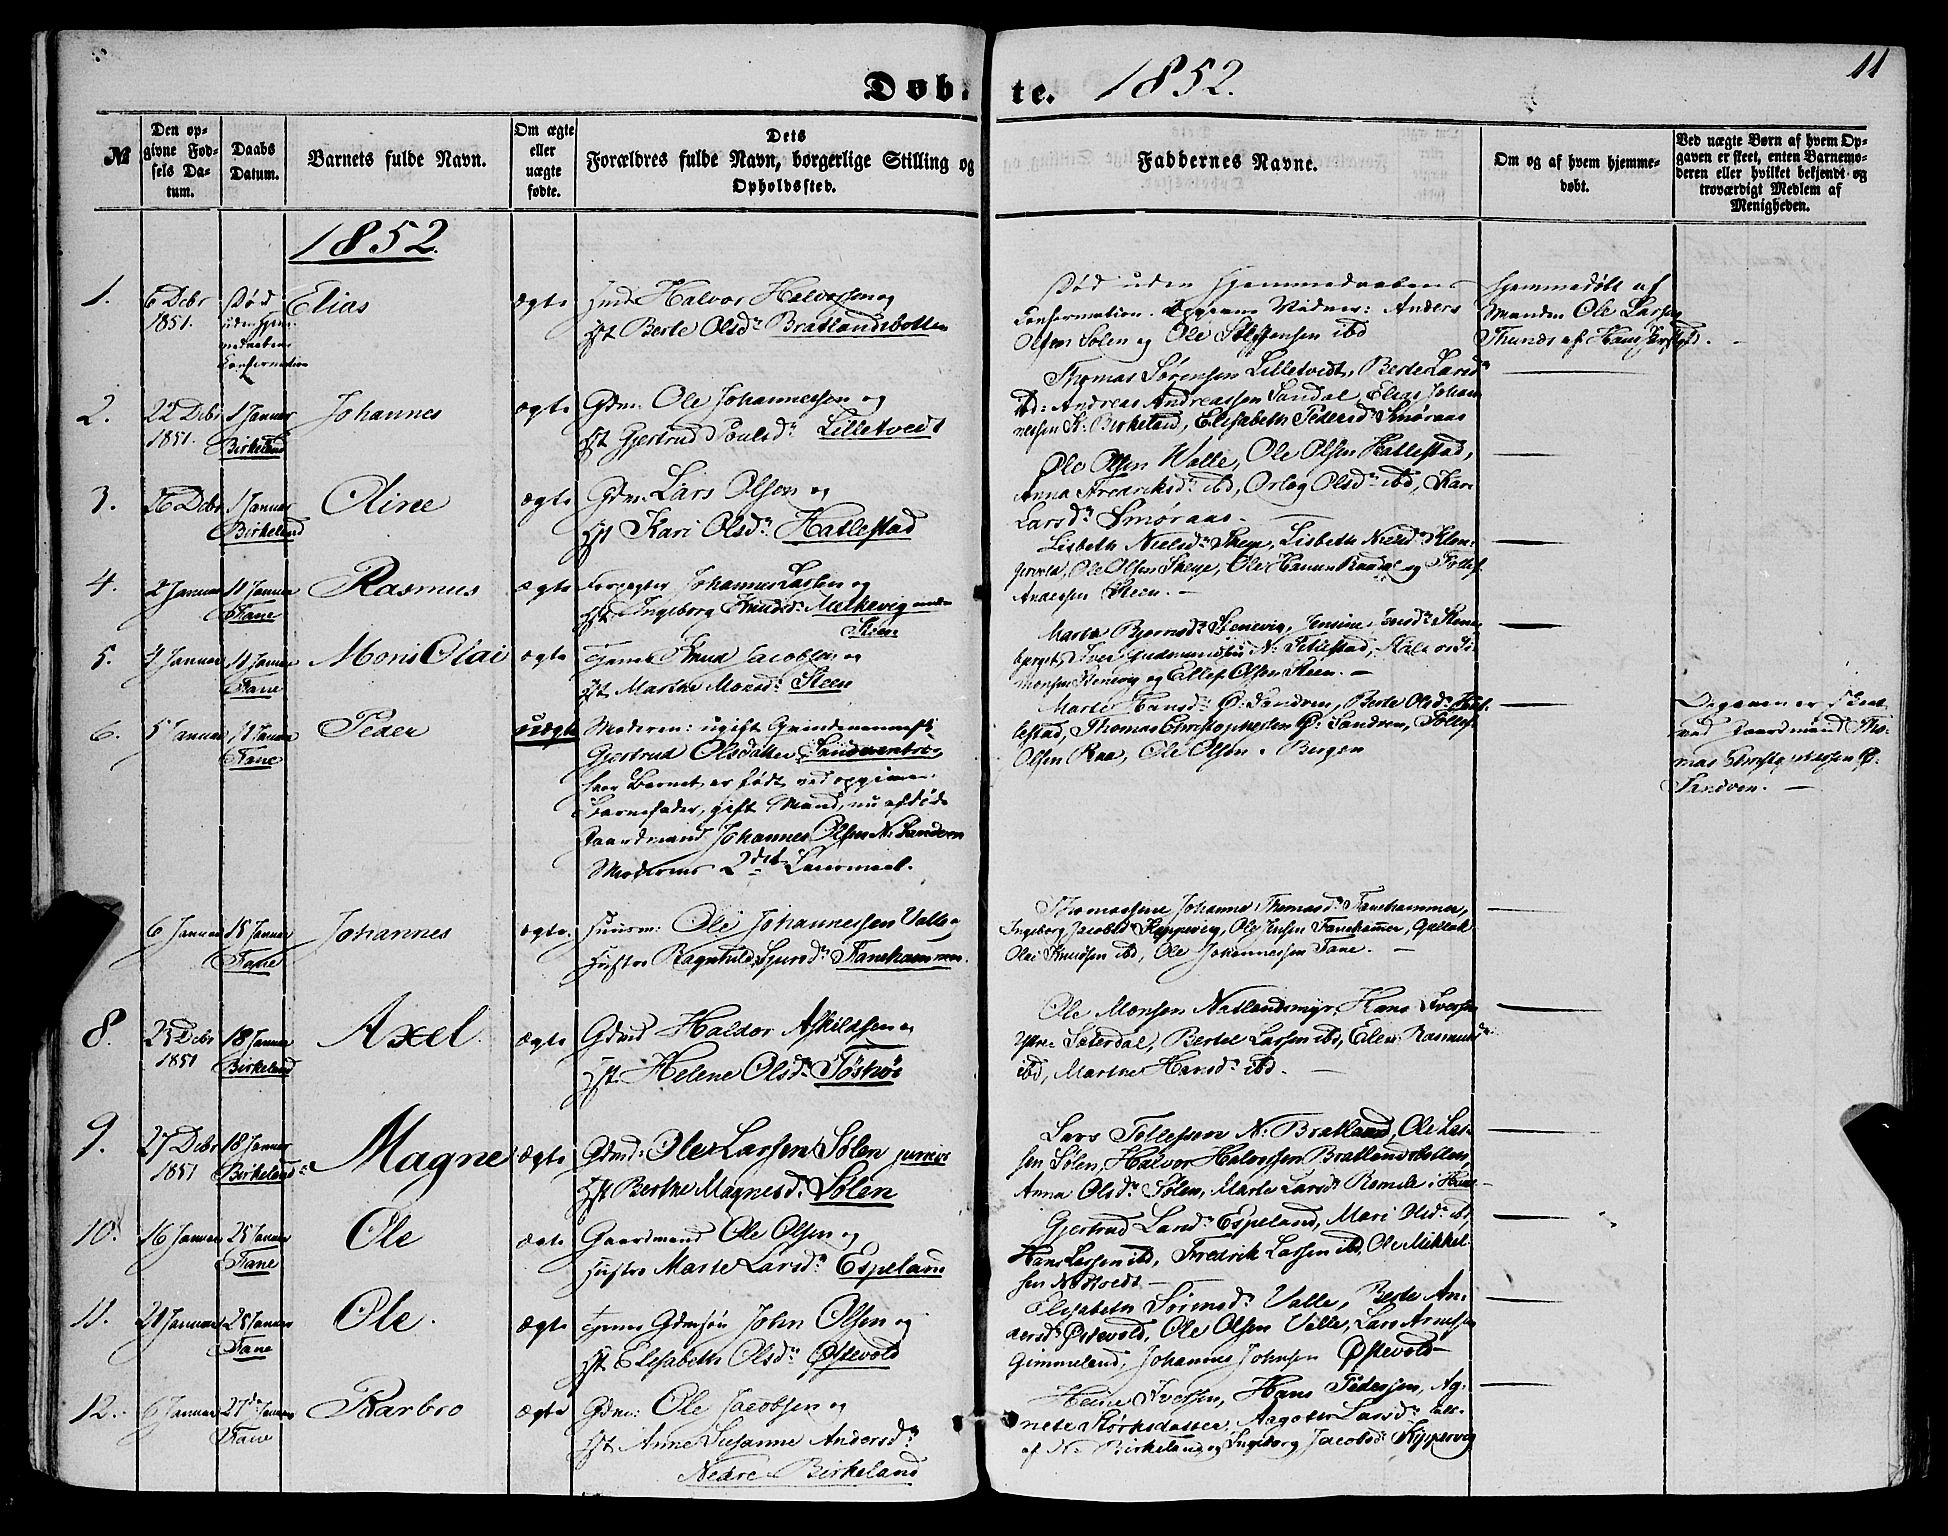 11
Døbte. 1852.
№
Den opgivne Fødsels Datum.
Daabs Datum.
Barnets fulde Navn.
Om ægte eller uægte fødte.
Dets Forældres fulde Navn, borgerlige Stilling og Opholdssted.
Faddernes Navne.
Om og af hvem hjemmedøbt.
Ved uægte Børn af hvem Opgaven er skeet, enten Barnemoderen eller hvilket bekjendt og troværdigt Medlem af Menigheden.
1852.
1.
6 Debr
1851.
Død
Confirmation
Elias
ægte
Halvor Halvorsen og
Hst Berte Olsdr Bratlandsbotten
Død uden Hjemmedaabens
Confirmation. Vidner: Anders
Olsen Sølen og Ole ibd
Hjemmedøbt af
Manden Ole Larsen
2.
22 Debr
1851.
1 Januar
Birkeland
Johannes
ægte
Gdm. Ole Johannessen og
Hst Gjertrud Poulsdr Lilletvedt
Thomas Sørensen Lilletvedt, Berte Larsdr
ibd: Andreas Andreassen Sandal, Elias Johan-
nessen St. Birkeland, Elisabeth Pedersdr Smøraas
3.
26 Debr
1 Januar
Birkeland
Oline
ægte
Gdm. Lars Olsen og
Hst Kari Olsdr Hatlestad
Ole Olsen Walle, Ole Olsen Hatlestad,
Anna Fredriksdr ibd, Orlog Olsdr ibd, Kari
Larsdr Smøraas.
4.
2 Januar
11 Januar
Fane
Rasmus
ægte
Forpagter Johannes Larsen og
Hst Ingeborg Knudsdr Melkevig under
Steen
Lisbeth Nielsdr Skeye, Lisbeth Nielsdr
Ole Olsen Skeye, Ole Hansen Raadal og Tollef
Andersen Steen.
5.
4 Januar
11 Januar
Fane
Mons Olai
ægte
Knud Jacobsen og
Hst Marthe Monsdr Steen
Marta Bjørnsdr Stenevig, Jensine
Iver Gudmundsen N. Titlestad,
monsen Stenevig og Ellef Olsen Steen.
6.
5 Januar
11 Januar
Fane
Peder
uægte
Moderen: ugift
Gjertrud Olsdatter
hvor Barnet er født, ved opgiven
Barnefader, gift Mand, nu afdøde
Gaardmand Johannes Olsen N. Sandven
Moderens 2det Leiermaal.
Marte Hansdr Ø. Sandven, Berte Olsdr Tit-
lestad, Thomas Christophersen Ø. Sandven, Tollef
Olsen Raa, Ole Olsen, Bergen
Opgaven er skeet
ved Gaardmand Tho-
mas Christophersen Ø.
Sandven.
6 Januar
15 Januar
Fane
Johannes
ægte.
Huusm: Ole Johannessen Valle og
Hustru Ragnhild Sjursdr Fanehammer.
Thomassine Johanne Thomasdr Fanehammer,
Ingeborg Jacobsdr Kippevig, Ole Jensen Fanehammer,
Olai Knudsen ibd, Ole Johannessen Fane.
8.
23 Debr
1851
18 Januar
Birkeland
Axel.
ægte
Gdmd Haldor Askildsen og
Hst Helene Olsdr Tøsket
Ole Monsen Natlandsmyr, Hans Iversen
Yttre Sæterdal, Bertel Larsen ibd, Elen Rasmusdr
ibd, Marthe Hansdr ibd.
9.
27 Debr
1851
18 Januar
Birkeland
Magne
ægte
Gdmd: Ole Larsen Sølen junior
Hst Berthe Magnesdr Sølen
Lars Tollefsen N. Bratland, Ole Lar-
sen Sølen, Halvor Halvorsen Bratlandsbotten,
Anna Olsdr Sølen, Marte Larsdr
10.
16 Januar
25 Januar
Fane
Ole
ægte
Gaardmand Ole Olsen og
Hustru Marte Larsdr Espeland
Gjertrud Larsdr Espeland, Mari Olsdr ibd,
Hans Larsen ibd, Fredrik Larsen ibd, Ole Mikkel-
sen Nøttvedt
11.
21 Januar
25 Januar
Fane
Ole.
ægte
Gdmsøn John Olsen og
Hst Elisabeth Olsdr Østevold
Elisabeth Sørensdr Valle, Berte An-
dersdr Østevold, Ole Olsen Valle, Lars Arnesen
Gimmeland, Johannes Johnsen Østevold
12.
6 Januar
27de Januar
Fane
Barbro
ægte
Gdm: Ole Jacobsen og
Hst Anne Susanne Andersdr
Nedre Birkeland
Heine Iversen, Hans Pedersen, Ag-
nete Størksdatter, Aagote Larsdr alle
af N. Birkeland og Ingeborg Jacobsdr Kippervig